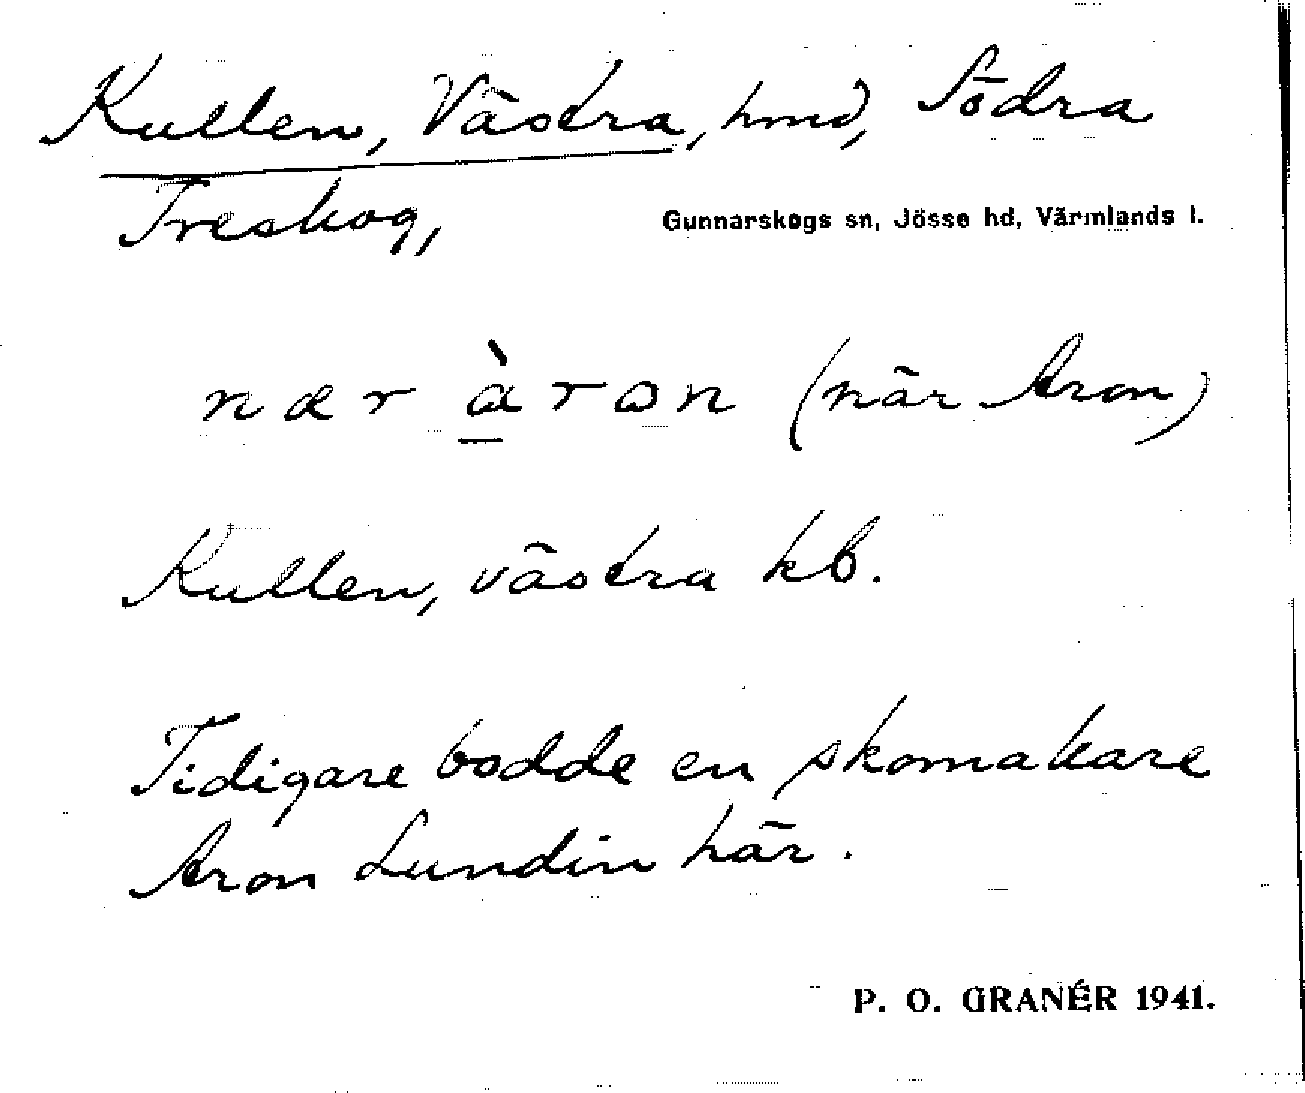 Kullen, Västra, hmd, Södra
Treskog,
Gunnarskogs sn, Jösse hd, Värmlands l.
nær àron (när Aron)
Kullen, västra kb.
Tidigare bodde en skomakare
Aron Lundin här.
P. O. GRANÉR 1941.